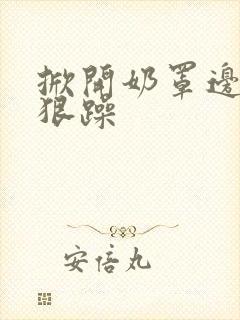 掀開奶罩邊
狠躁
安倍丸